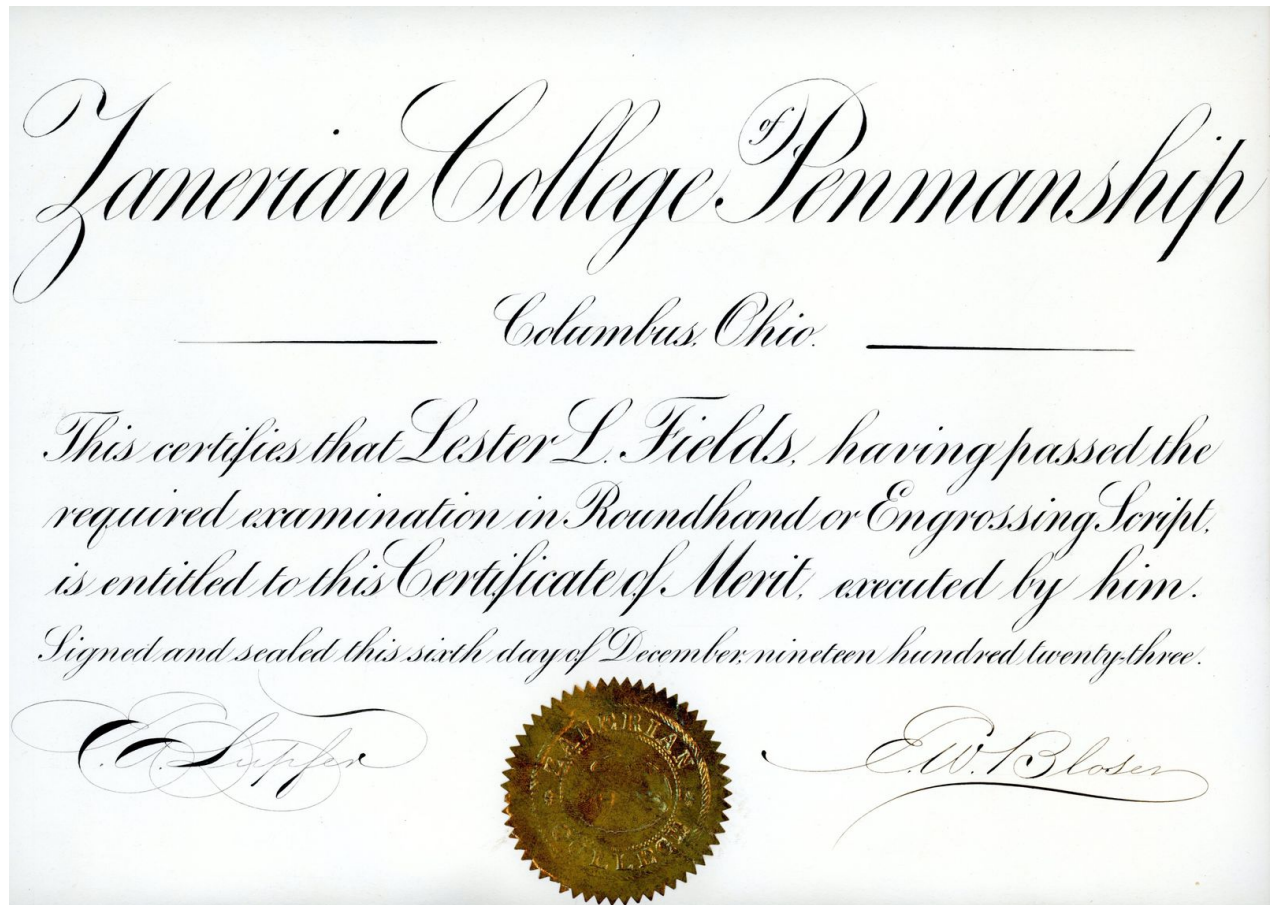 Zanerian College of Penmanship
Columbus, Ohio.
This certifies that Lester L. Fields, having passed the
required examination in Roundhand or Engrossing Script,
is entitled to this Certificate of Merit, executed by him.
Signed and sealed this sixth day of December, nineteen hundred twenty-three.
E.A. Lupfer
E.W. Bloser
ZANERIAN
COLLEGE